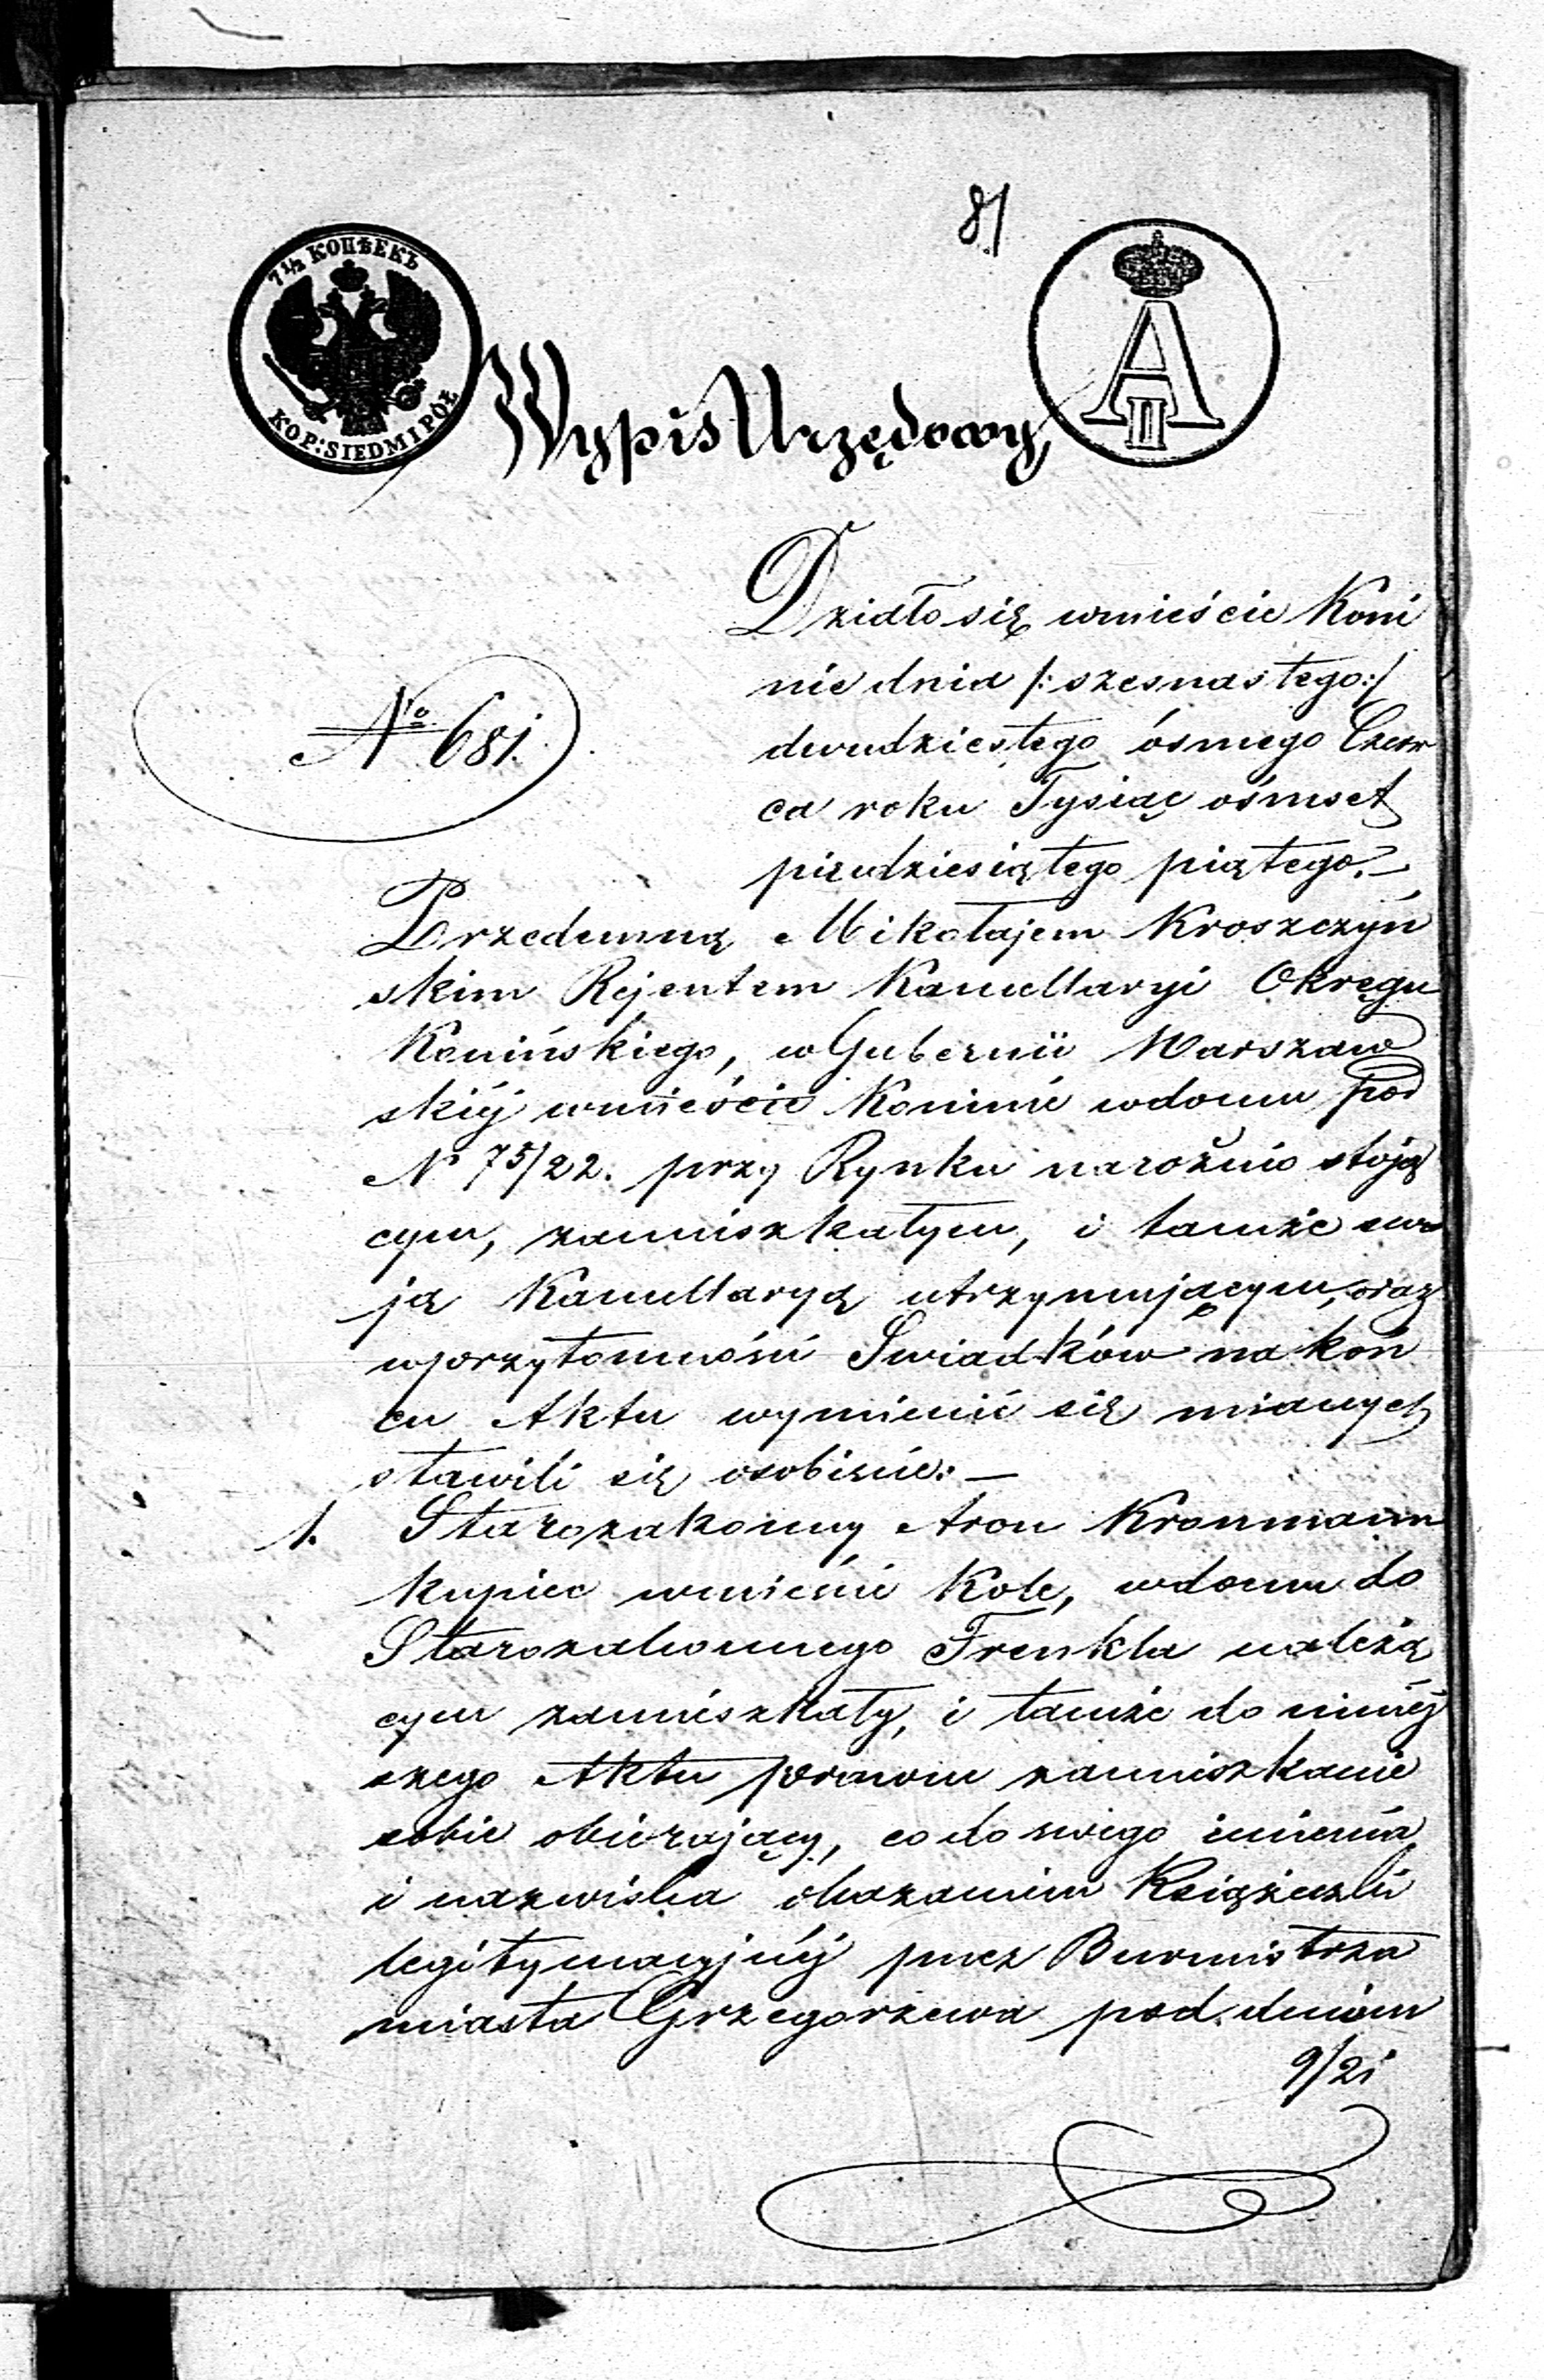 81
7½ КОПѢЕКЪ
КОР: SIEDM I PÓŁ
A II
Wypis Urzędowy,
Działo się wmieście Koni
nie dnia /: szesnastego :/
dwudziestego ósmego Czerw
ca roku Tysiąc ośmset
pięćdziesiątego piątego.—
№ 681.
Przedemną Mikołajem Kroszczyń
skim Rejentem Kancellaryi Okręgu
Konińskiego, w Gubernii Warszaw
skiéj wmieście Koninie wdomu pod
N 75/22. przy Rynku narożnio stoją
cym, zamieszkałym, i tamże swo
ją Kancellaryą utrzymującym, oraz
wprzytomności Swiadków na koń
cu Aktu wymienić się mianych
stawili się osobiście:—
1. Starozakonny Aron Kronmann
kupiec wmieście Kole, wdomu do
Starozakonnego Frenkla należą
cym zamieszkały, i tamże do niniéj
szego Aktu prawne zamieszkanie
sobie obierający, co do swego imienia
i nazwiska okazaniem Książeczki
legitymacyjnéj przez Burmistrza
miasta Grzegorzewa pod dniem
9/21